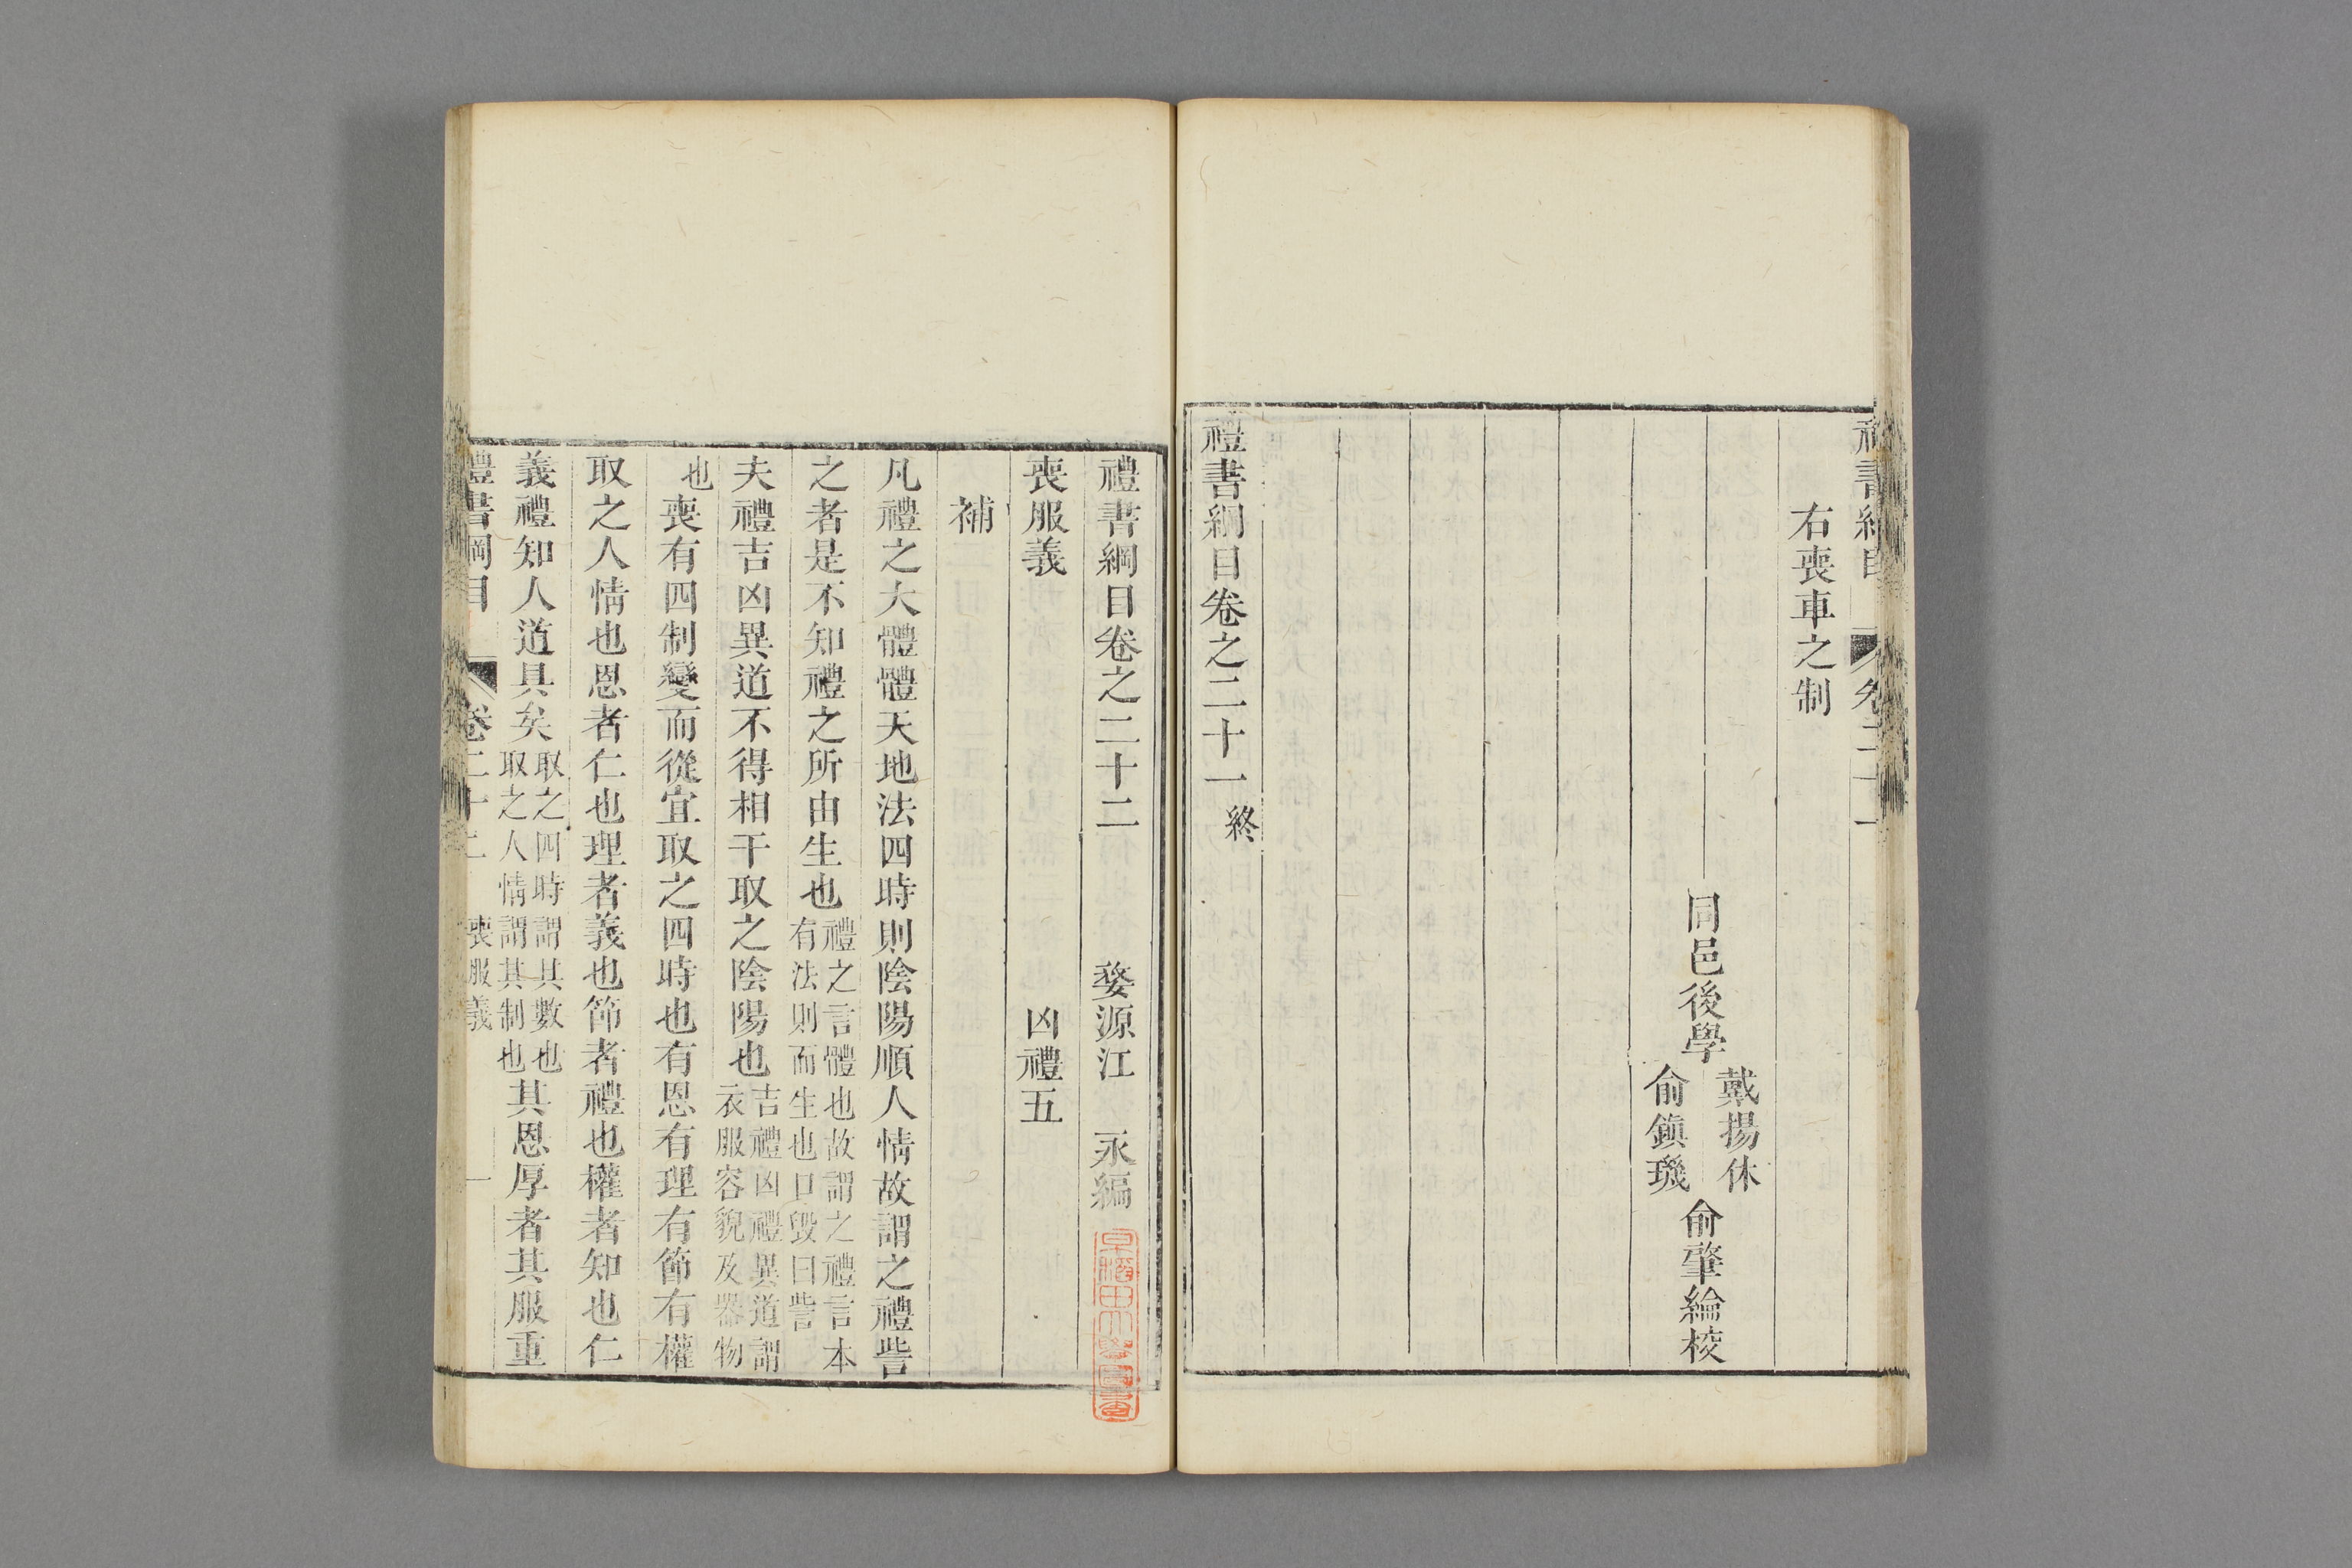 禮書綱目　卷二十一
右喪車之制
同邑後學　戴揚休　俞鎮璣　俞肇綸校
禮書綱目卷之二十一終
禮書綱目卷之二十二　婺源江　永編
早稲田大學圖書
喪服義　凶禮五
補
凡禮之大體體天地法四時則陰陽順人情故謂之禮訾
之者是不知禮之所由生也禮之言體也故謂之禮言本有法則而生也口毀曰訾
夫禮吉凶異道不得相干取之陰陽也吉禮凶禮異道謂衣服容貌及器物
也喪有四制變而從宜取之四時也有恩有理有節有權
取之人情也恩者仁也理者義也節者禮也權者知也仁
義禮知人道具矣取之四時謂其數也取之人情謂其制也其恩厚者其服重
禮書綱目　卷二十二　喪服義　一